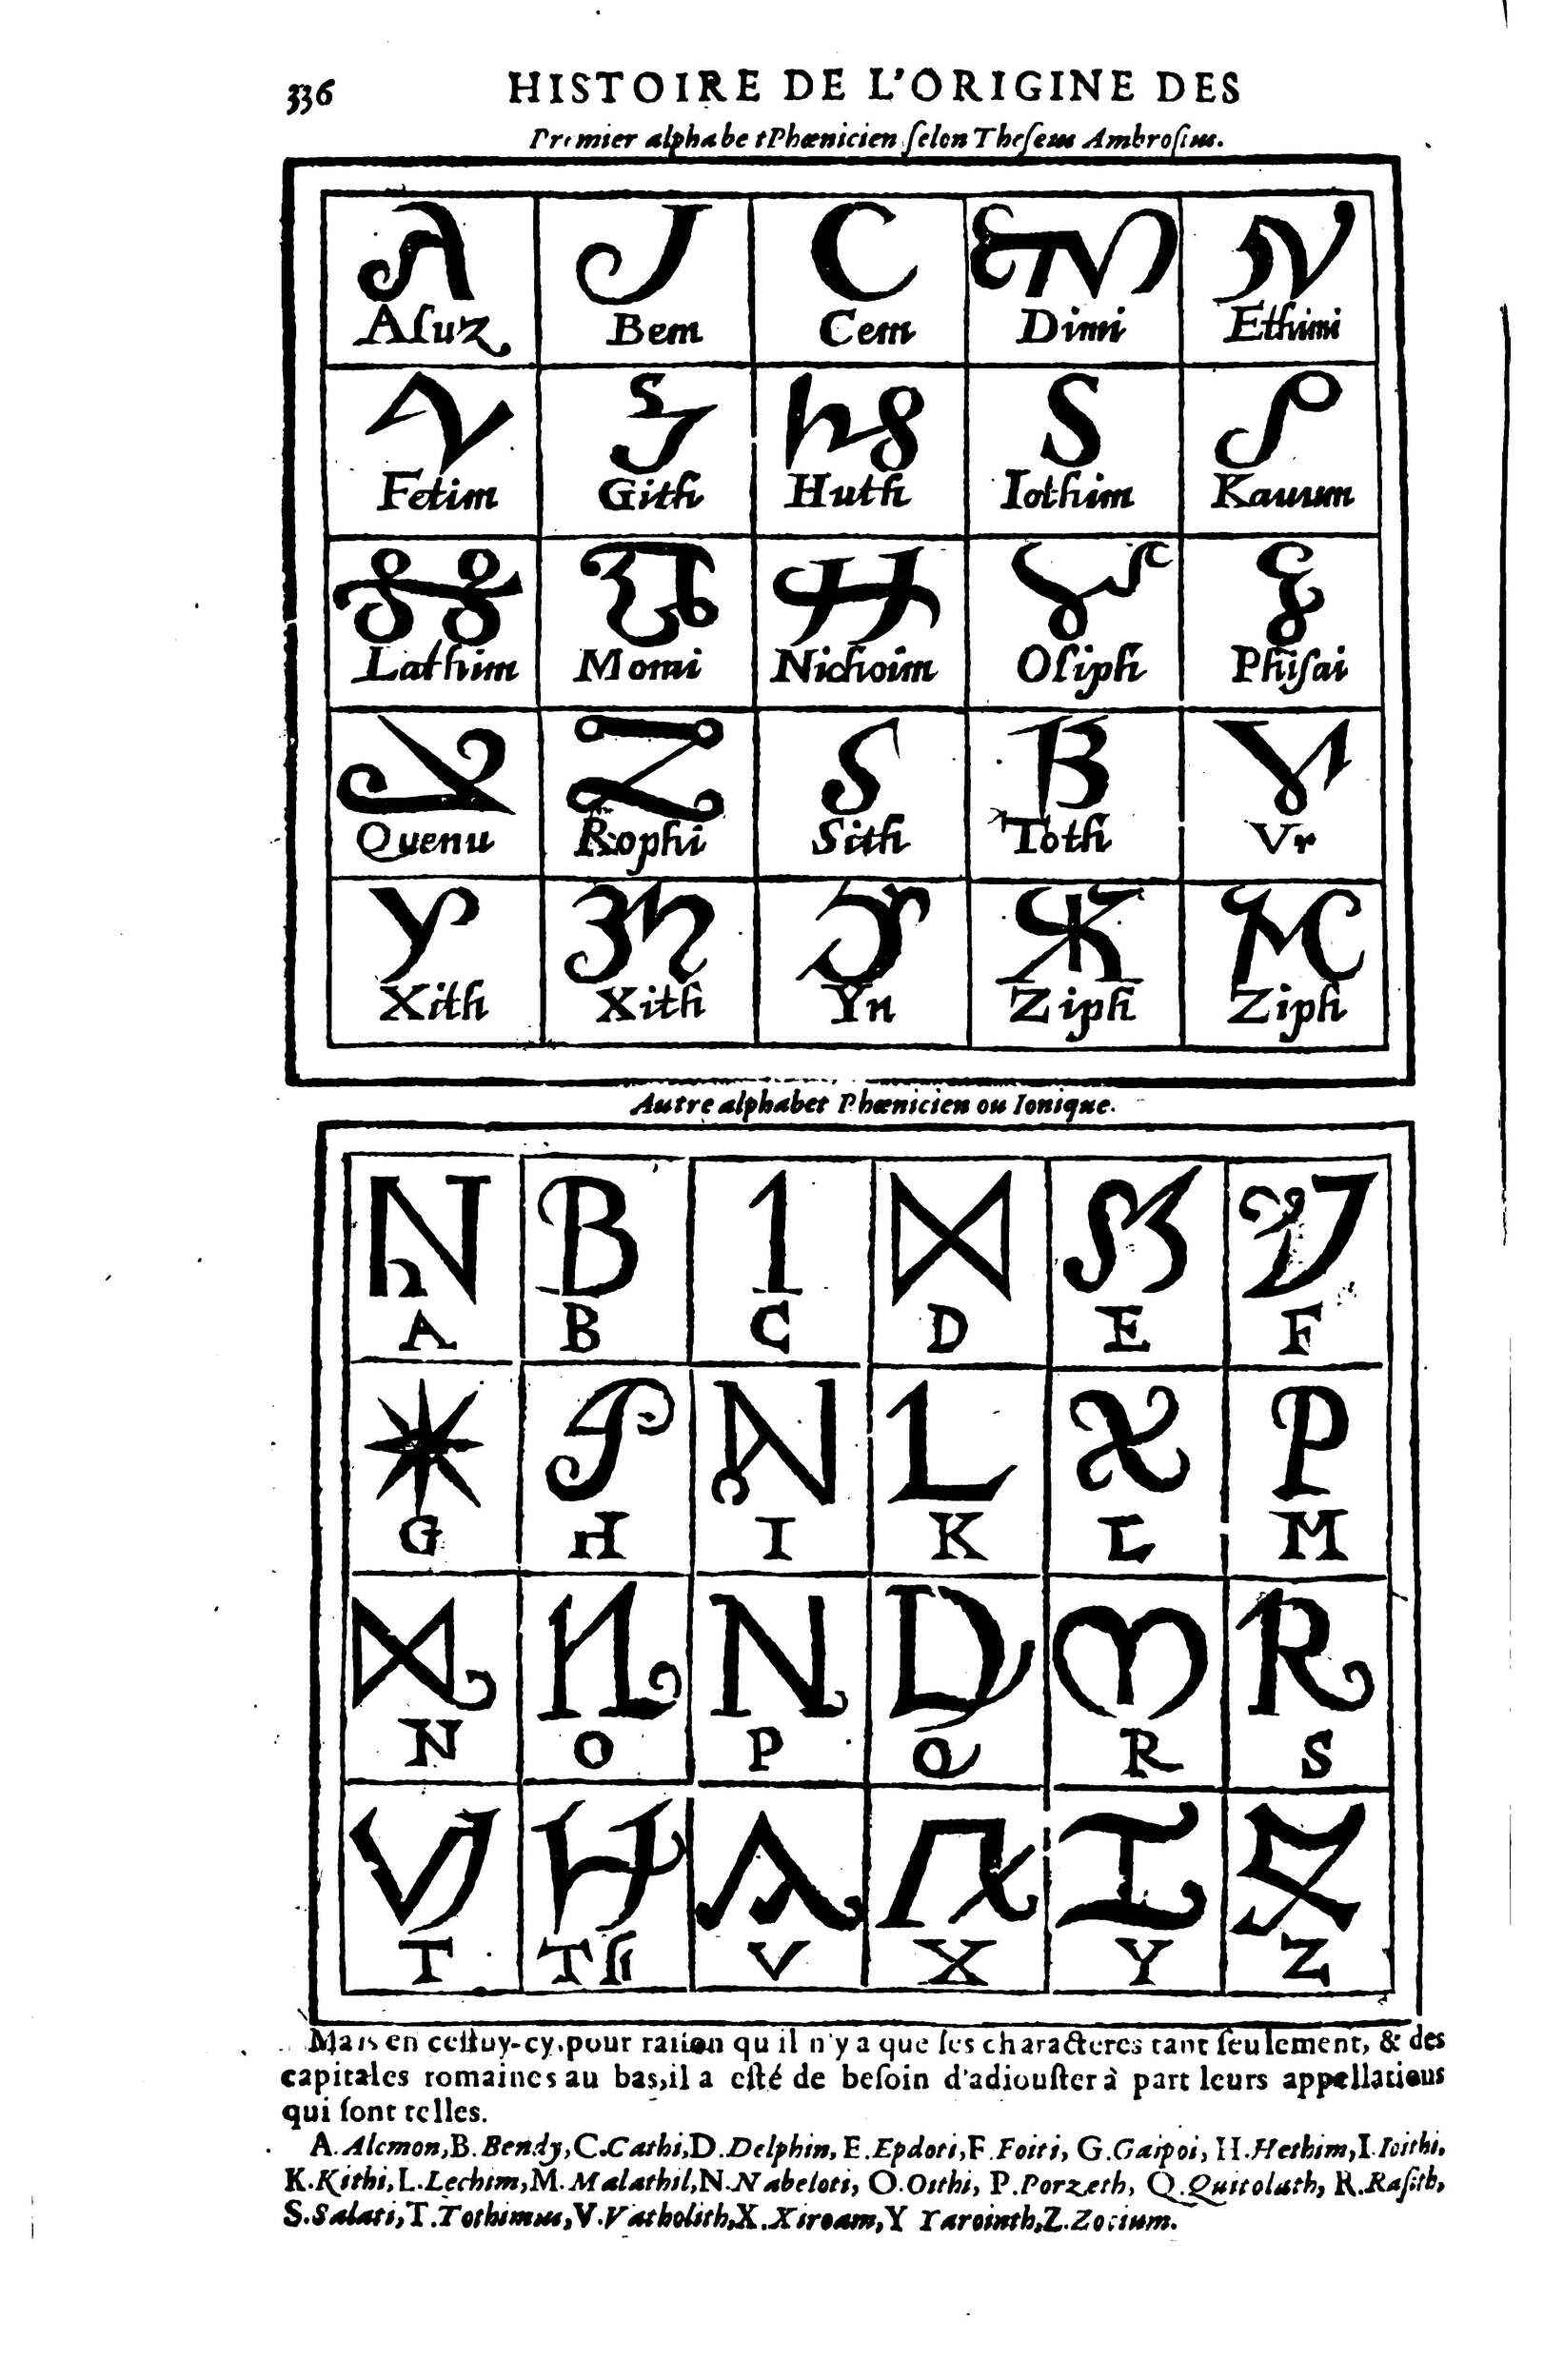 336 HISTOIRE DE L'ORIGINE DES
Premier alphabet Phœnicien ſelon Theſeus Ambroſius.
Aſuz Bem Cem Dimi Ethimi
Fetim Gith Huth Iothim Kauum
Lathim Momi Nichoim Oſiph Phiſai
Quenu Rophi Sith Toth Vr
Xith Xith Yn Ziph Ziph
Autre alphabet Phœnicien ou Ionique.
A B C D E F
G H I K L M
N O P Q R S
T Th V X Y Z
Mais en ceſtuy-cy, pour raiſon qu'il n'y a que ſes characteres tant ſeulement, & des
capitales romaines au bas, il a eſté de beſoin d'adiouſter à part leurs appellations
qui ſont telles.
A. Alcmon, B. Bendy, C. Cathi, D. Delphin, E. Epdoti, F. Foiti, G. Gaipoi, H. Hethim, I. Ioithi,
K. Kithi, L. Lechim, M. Malathil, N. Nabeloti, O. Otthi, P. Porzeth, Q. Quitolath, R. Raſith,
S. Salati, T. Tothimus, V. Vatholith, X. Xiroam, Y Yarointh, Z. Zotium.